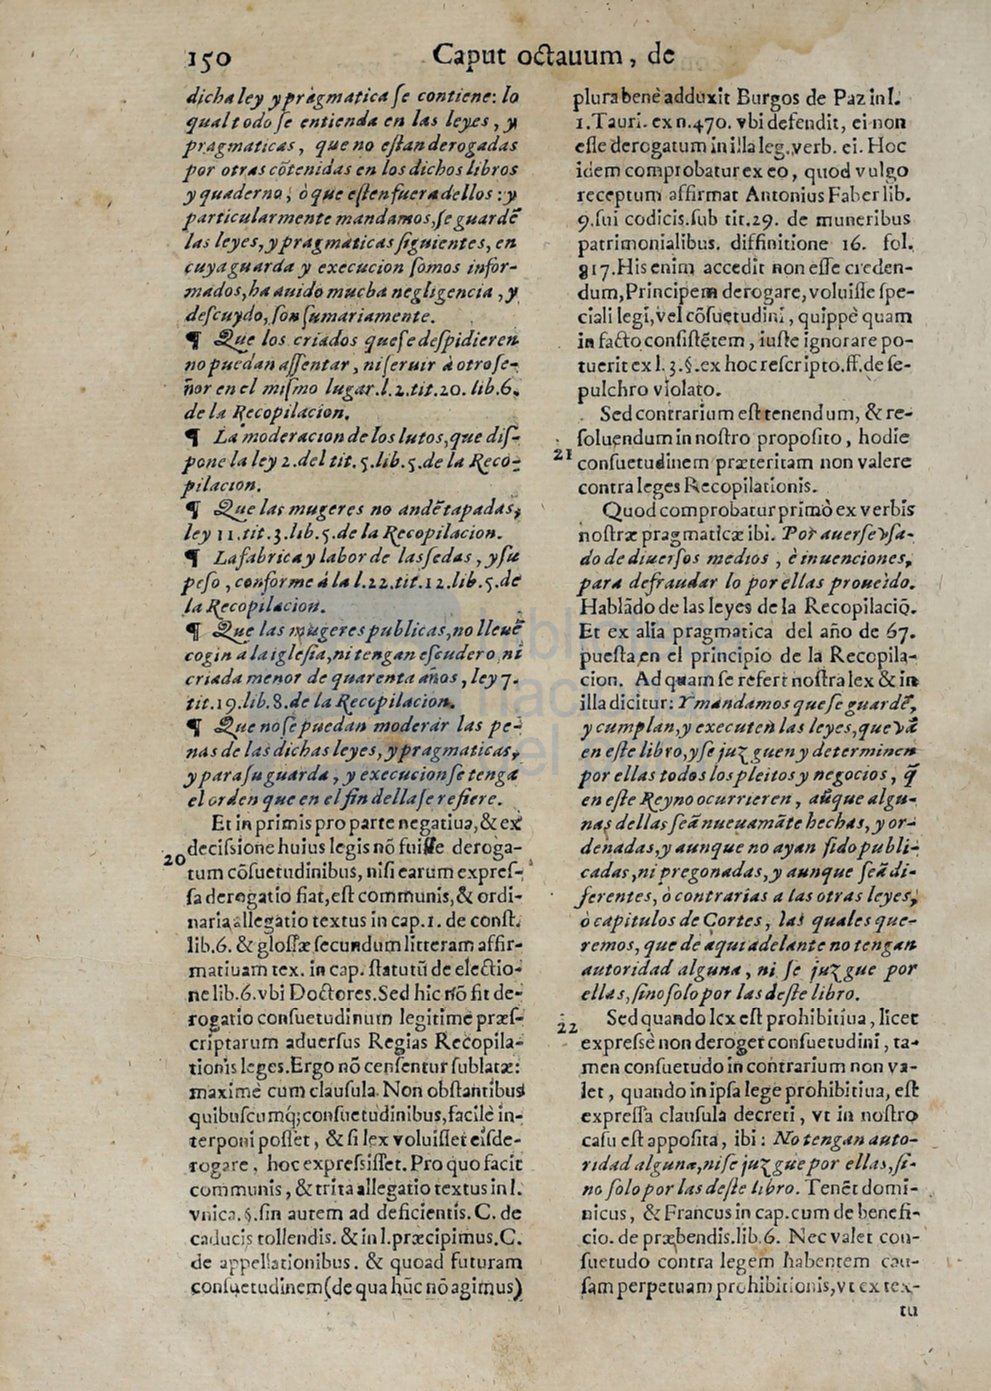 150 Caput octauum, de
dicha ley y pragmatica se contiene: lo
qual todo se entienda en las leyes, y
pragmaticas, que no estan derogadas
por otras cõtenidas en los dichos libros
y quaderno, ò que esten fuera dellos: y
particularmente mandamos, se guardẽ
las leyes, y pragmaticas siguientes, en
cuya guarda y execucion somos infor-
mados, ha auido mucha negligencia, y
descuydo, son sumariamente.
¶ Que los criados que se despidieren
no puedan assentar, ni seruir à otro se-
ñor en el mismo lugar. l. 2. tit. 20. lib. 6.
de la Recopilacion.
¶ La moderacion de los lutos, que dis-
pone la ley 2. del tit. 5. lib. 5. de la Reco-
pilacion.
¶ Que las mugeres no andẽ tapadas,
ley 11. tit. 3. lib. 5. de la Recopilacion.
¶ La fabrica y labor de las sedas, y su
peso, conforme á la l. 22. tit. 12. lib. 5. de
la Recopilacion.
¶ Que las mugeres publicas, no lleuẽ
cogin a la iglesia, ni tengan escudero, ni
criada menor de quarenta años, ley 7.
tit. 19. lib. 8. de la Recopilacion.
¶ Que no se puedan moderar las pe-
nas de las dichas leyes, y pragmaticas,
y para su guarda, y execucion se tenga
el orden que en el fin della se refiere.
Et in primis pro parte negatiua, & ex
20 decissione huius legis nõ fuisse deroga-
tum cõsuetudinibus, nisi earum expres-
sa derogatio fiat, est communis, & ordi-
naria allegatio textus in cap. 1. de const.
lib. 6. & glossæ secundum litteram affir-
matiuam tex. in cap. statutũ de electio-
ne lib. 6. vbi Doctores. Sed hic nõ fit de-
rogatio consuetudinum legitimè præs-
criptarum aduersus Regias Recopila-
tionis leges. Ergo nõ censentur sublatæ:
maximè cum clausula. Non obstantibus
quibuscumq; consuetudinibus, facilè in-
terponi posset, & si lex voluisset eisde-
rogare, hoc expressisset. Pro quo facit
communis, & trita allegatio textus in l.
vnica. §. sin autem ad deficientis. C. de
caducis tollendis. & in l. præcipimus. C.
de appellationibus. & quoad futuram
consuetudinem (de qua hũc nõ agimus)
plura benè adduxit Burgos de Paz in l.
1. Tauri. ex n. 470. vbi defendit, ei non
esse derogatum in illa leg. verb. ei. Hoc
idem comprobatur ex eo, quod vulgo
receptum affirmat Antonius Faber lib.
9. sui codicis. sub tit. 29. de muneribus
patrimonialibus. diffinitione 16. fol.
817. His enim accedit non esse creden-
dum, Principem derogare, voluisse spe-
ciali legi, vel cõsuetudini, quippè quam
in facto consistẽtem, iuste ignorare po-
tuerit ex l. 3. §. ex hoc rescripto. ff. de se-
pulchro violato.
Sed contrarium est tenendum, & re-
soluendum in nostro proposito, hodie
21 consuetudinem præteritam non valere
contra leges Recopilationis.
Quod comprobatur primò ex verbis
nostræ pragmaticæ ibi. Por auerse vsa-
do de diuersos medios, è inuenciones,
para defraudar lo por ellas proueido.
Hablãdo de las leyes de la Recopilaciõ.
Et ex alia pragmatica del año de 67.
puesta en el principio de la Recopila-
cion. Ad quam se refert nostra lex & in
illa dicitur: Y mandamos que se guardẽ,
y cumplan, y executen las leyes, que vã
en este libro, y se juzguen y determinen
por ellas todos los pleitos y negocios, q̃
en este Reyno ocurrieren, aũque algu-
nas dellas seã nueuamãte hechas, y or-
denadas, y aunque no ayan sido publi-
cadas, ni pregonadas, y aunque seã di-
ferentes, ò contrarias a las otras leyes,
ò capitulos de Cortes, las quales que-
remos, que de aqui adelante no tengan
autoridad alguna, ni se juzgue por
ellas, sino solo por las deste libro.
22 Sed quando lex est prohibitiua, licet
expressè non deroget consuetudini, ta-
men consuetudo in contrarium non va-
let, quando in ipsa lege prohibitiua, est
expressa clausula decreti, vt in nostro
casu est apposita, ibi: No tengan auto-
ridad alguna, ni se juzgue por ellas, si-
no solo por las deste libro. Tenẽt domi-
nicus, & Francus in cap. cum de benefi-
cio. de præbendis. lib. 6. Nec valet con-
suetudo contra legem habentem cau-
sam perpetuam prohibitionis, vt ex tex-
tu